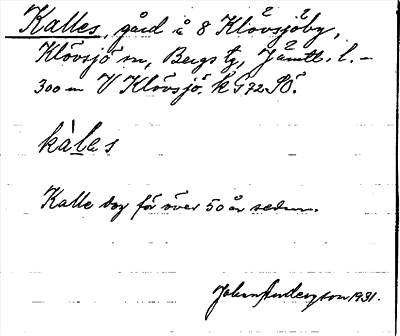 Kalles, gård å 8 Klövsjöby,
Klövsjö sn, Bergs tg, Jämtl. l. –
300 m V Klövsjö k G 72 SÖ.
kàles
Kalle dog för över 50 år sedan.
Johan Anderzson 1931.